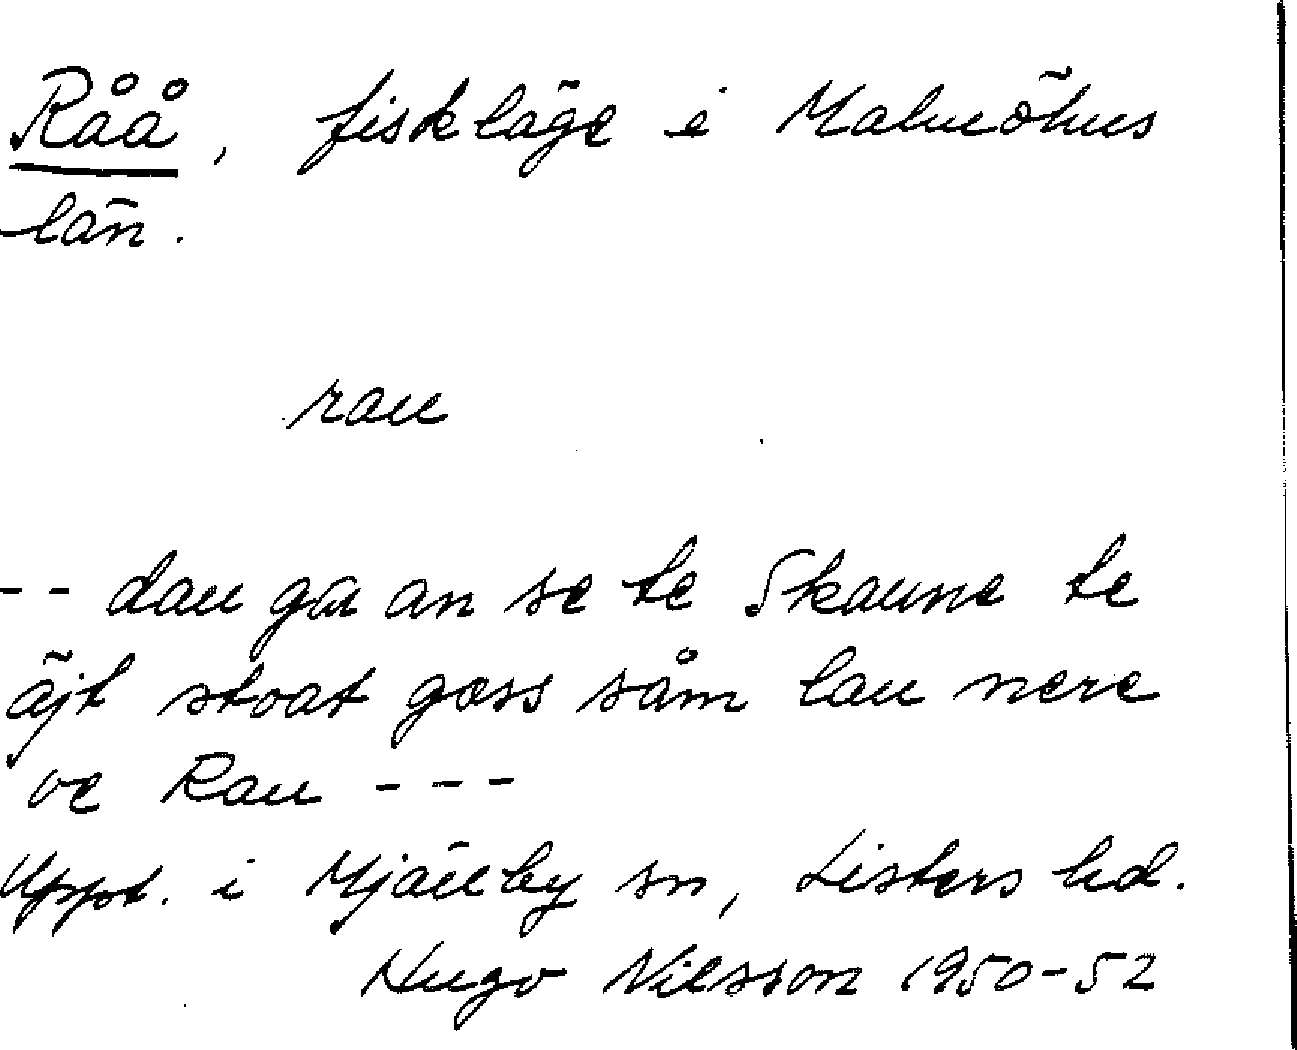 Råå, fiskläge i Malmöhus
län.
rau
-- dau ga an se te Skaune te
äjt stoat gass såm lau nere
ve Rau ---
Uppt. i Mjällby sn, Listers hd.
Hugo Nilsson 1950-52